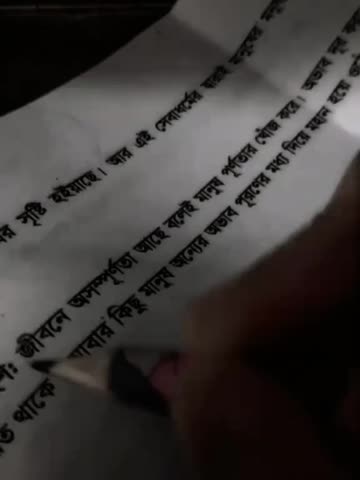 সৃষ্টি হইয়াছে। আর এই সেবাধর্মের দ্বারাই মানুষের
জীবনে অসম্পূর্ণতা আছে বলেই মানুষ পূর্ণতার খোঁজ করে। অভাব দূর
থাকে আবার কিছু মানুষ অন্যের অভাব পূরণের মধ্য দিয়ে মহান হয়ে